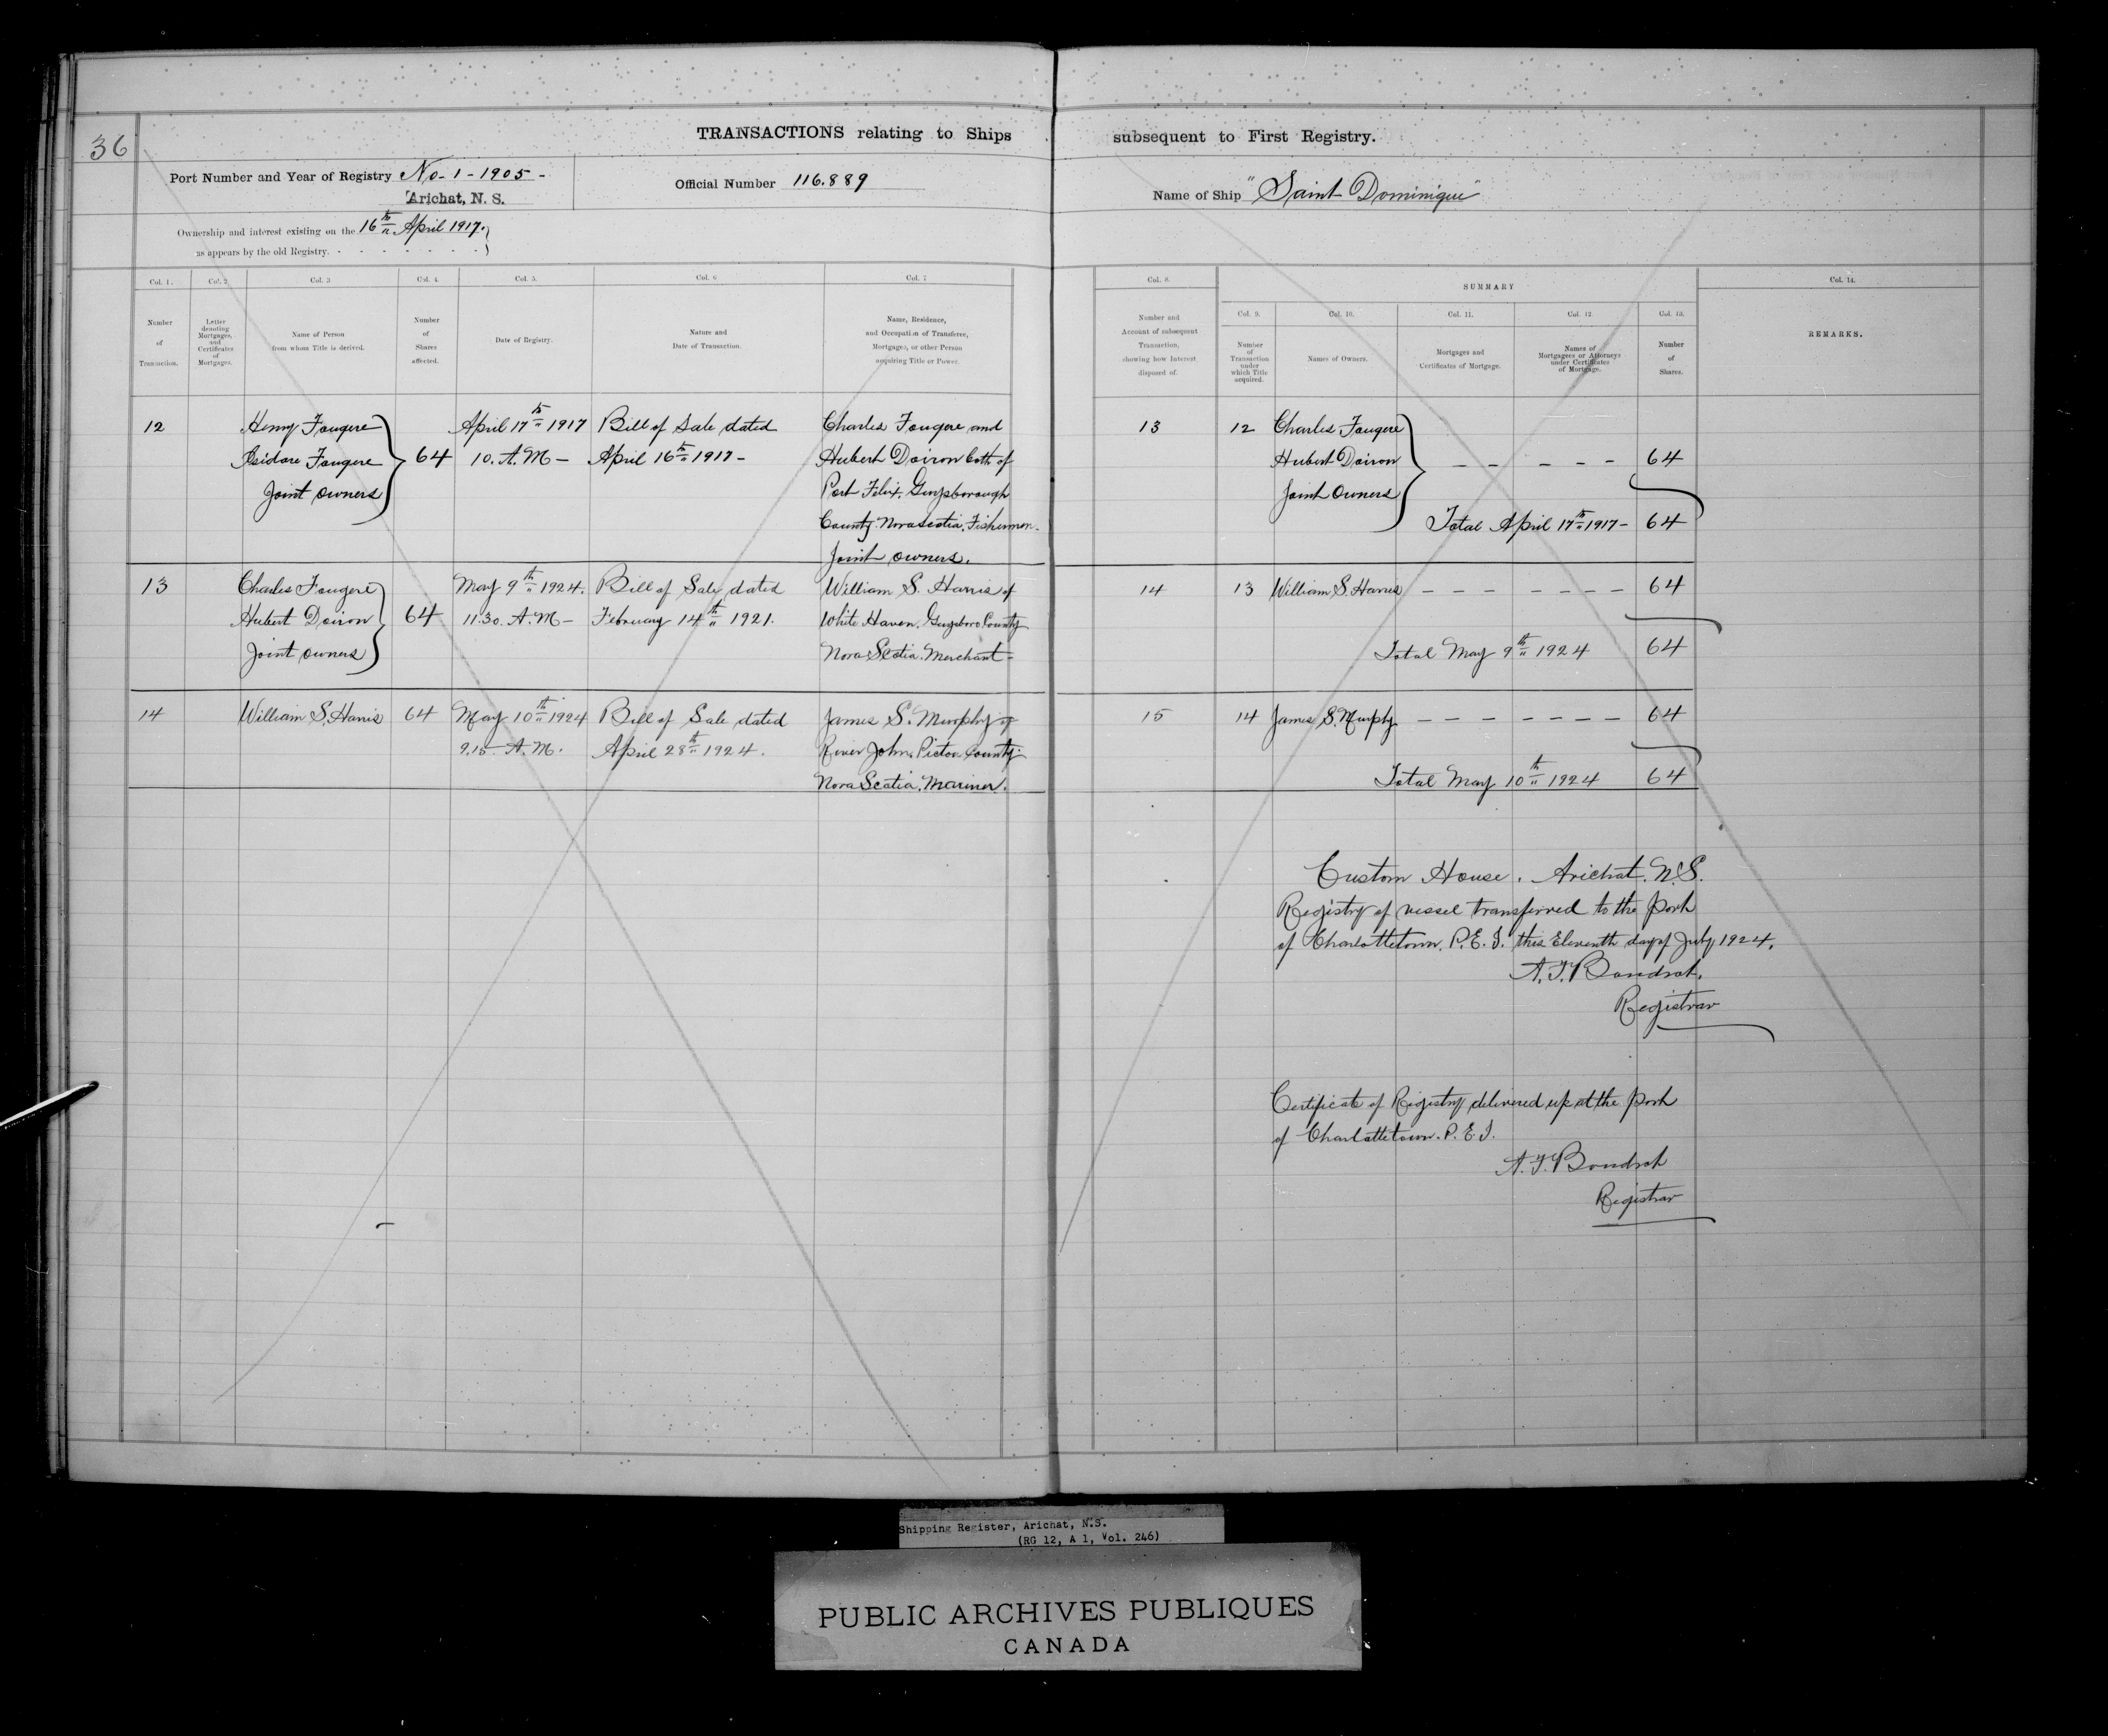 36
TRANSACTIONS relating to Ships subsequent to First Registry.
Port Number and Year of Registry No- 1 - 1905 -
Arichat, N. S.
Official Number 116.889
Name of Ship "Saint Dominique"
Ownership and interest existing on the 16th April 1917.
as appears by the old Registry.
Col. 1.
Number
of
Transaction.
Col. 2
Letter
denoting
Mortgages,
and
Certificates
of
Mortgages.
Col. 3
Name of Person
from whom Title is derived.
Col. 4.
Number
of
Shares
affected.
Col. 5.
Date of Registry.
Col. 6
Nature and
Date of Transaction.
Col. 7
Name, Residence,
and Occupation of Transferee,
Mortgagee, or other Person
acquiring Title or Power.
Col. 8.
Number and
Account of subsequent
Transaction,
showing how Interest
disposed of.
SUMMARY
Col. 9.
Number
of
Transaction
under
which Title
acquired.
Col. 10.
Names of Owners.
Col. 11.
Mortgages and
Certificates of Mortgage.
Col. 12
Names of
Mortgagees or Attorneys
under Certificates
of Mortgage.
Col. 13.
Number
of
Shares.
Col. 14.
REMARKS.
12
Henry Fougere
Isidore Fougere
Joint owners
64
April 17th 1917
10. A.M -
Bill of Sale dated
April 16th 1917 -
Charles Fougere and
Hubert Doiron both of
Port Felix, Guysborough
County Nova Scotia, Fishermen.
Joint owners.
13
12
Charles Fougere
Hubert Doiron
Joint Owners
- - - - - 64
Total April 17th 1917 - 64
13
Charles Fougere
Hubert Doiron
Joint owners
64
May 9th 1924.
11.30. A.M -
Bill of Sale dated
February 14th 1921.
William S. Harris of
White Haven, Guysboro County
Nova Scotia. Merchant -
14
13
William S. Harris - - - - - - - 64
Total May 9th 1924 64
14
William S. Harris
64
May 10th 1924
9.15 A.M.
Bill of Sale dated
April 28th 1924.
James S. Murphy of
River John. Pictou County.
Nova Scotia. Mariner.
15
14
James S. Murphy - - - - - - - 64
Total May 10th 1924 64
Custom House. Arichat. N.S.
Registry of vessel transferred to the Port
of Charlottetown. P.E.I. this Eleventh day of July 1924.
A.F. Boudrot.
Registrar
Certificate of Registry delivered up at the Port
of Charlottetown. P.E.I.
A.F. Boudrot
Registrar
Shipping Register, Arichat, N.S.
(RG 12, A 1, Vol. 246)
PUBLIC ARCHIVES PUBLIQUES
CANADA